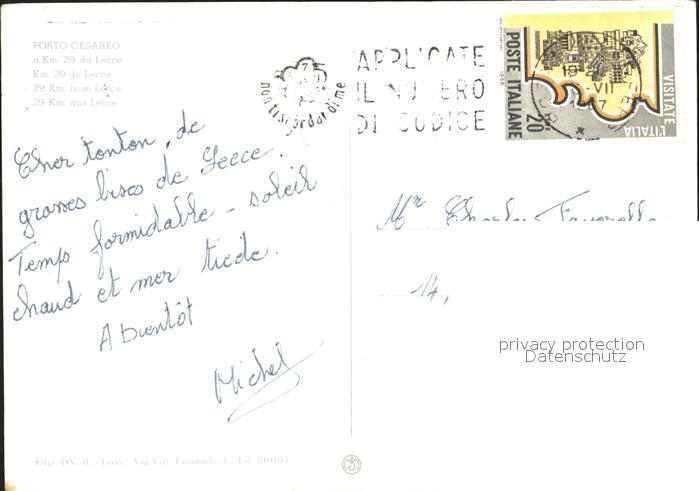 PORTO CESAREO
a Km. 29 da Lecce
Km. 29 de Lecce
29 Km. from Lecce
29 Km. aus Lecce
non ti scordar di me
APPLICATE
IL NUMERO
DI CODICE
POSTE ITALIANE
1966
20
VISITATE
L'ITALIA
19
VII
Cher tonton, de
grosses bises de Lecce.
Temps formidable - soleil
chaud et mer tiède.
A bientôt
Michel
Mr Charles
14,
privacy protection
Datenschutz
Ediz. DV. 8. Lecce - Via Vitt. Emanuele 1 - Tel. 20081